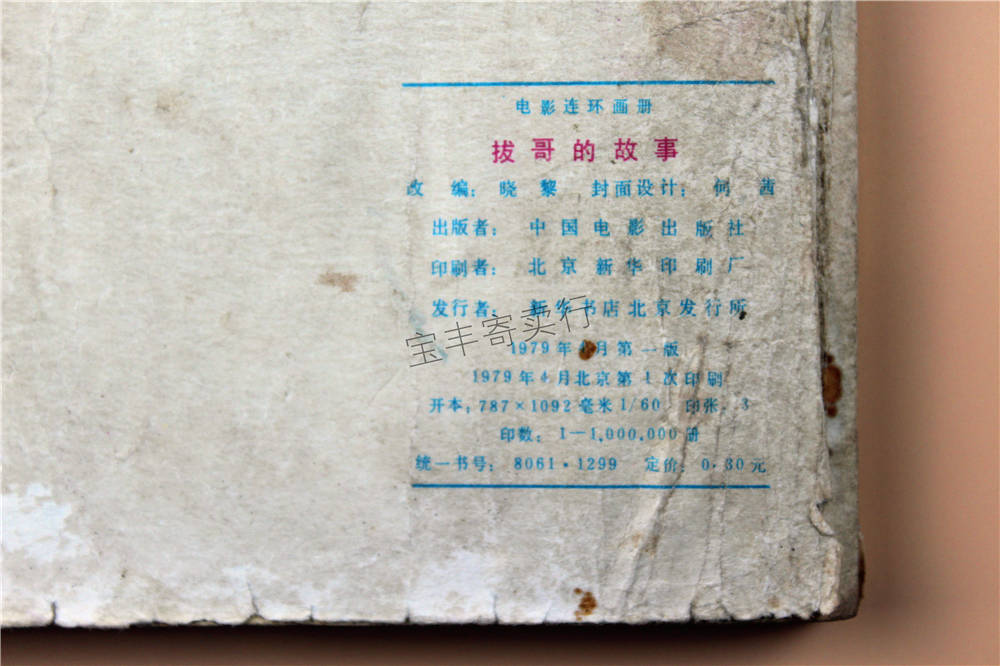 电影连环画册
拔哥的故事
改编：晓黎 封面设计：何茜
出版者：中国电影出版社
印刷者：北京新华印刷厂
发行者：新华书店北京发行所
宝丰寄卖行
1979年4月第一版
1979年4月北京第1次印刷
开本：787×1092毫米1/60 印张：3
印数：1—1,000,000册
统一书号：8061·1299 定价：0.30元